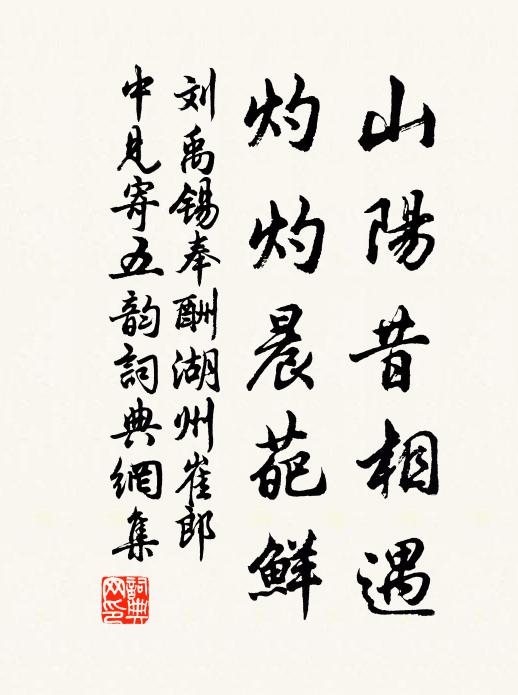 山陽昔相遇
灼灼晨葩鮮
刘禹锡奉酬湖州崔郎
中見寄五韵詞典網集